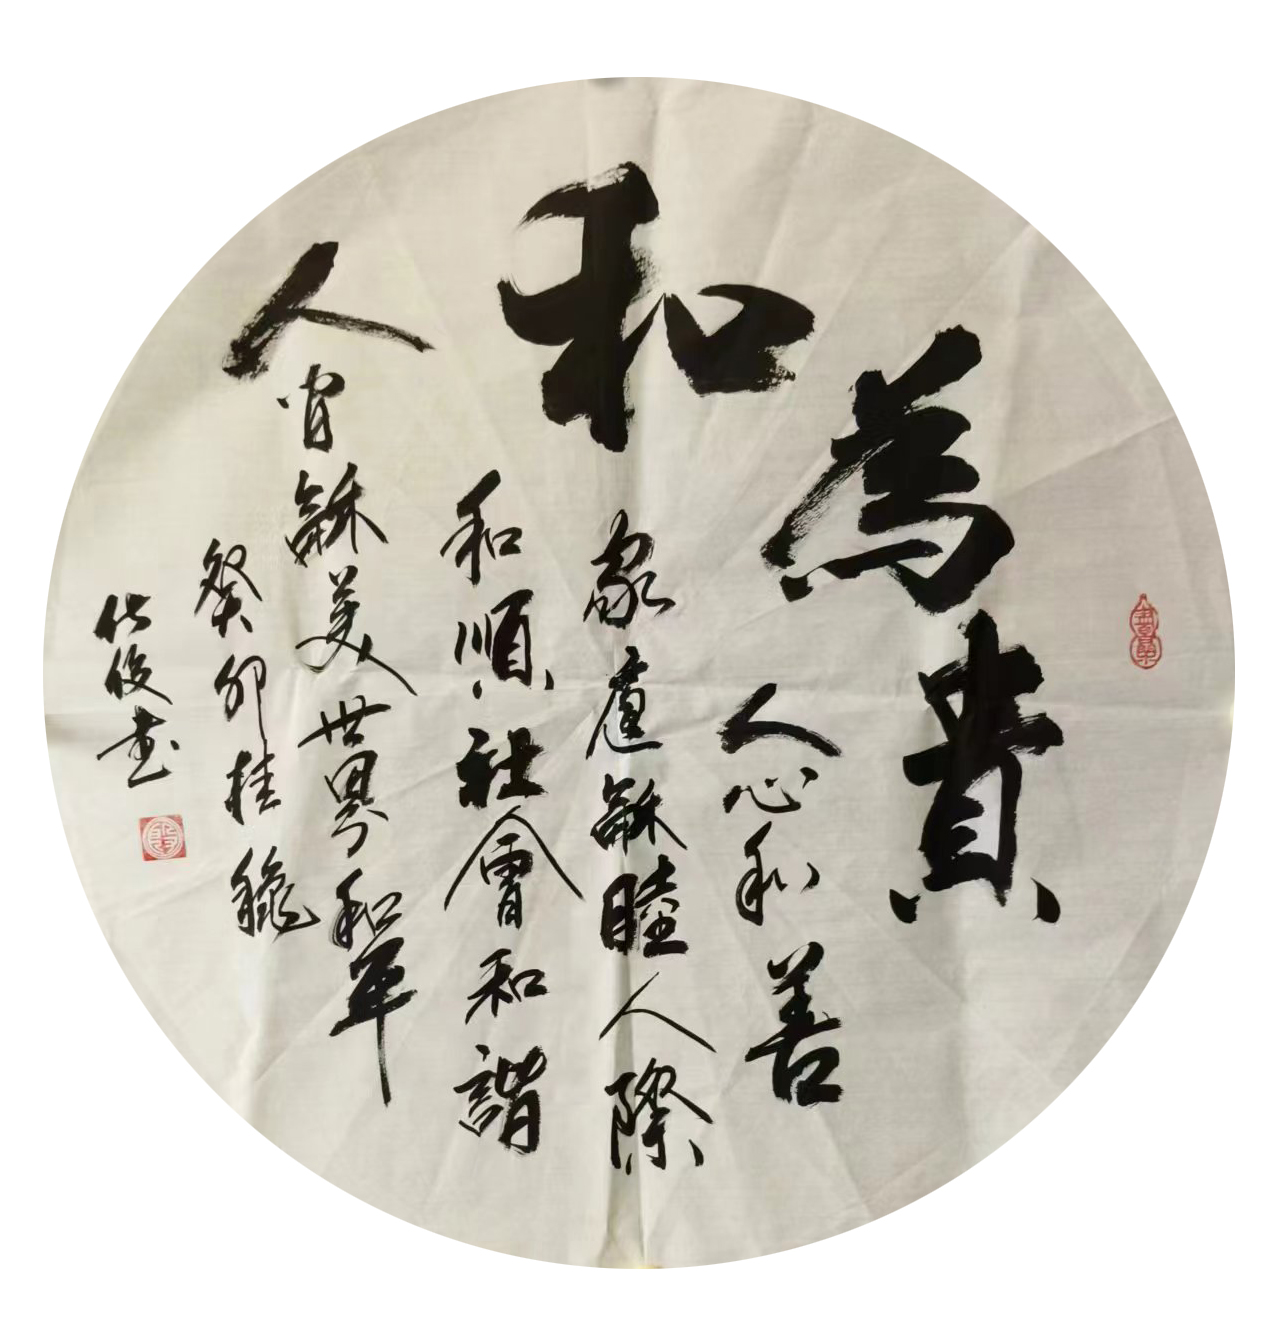 和為貴
人心和善
家庭龢睦人際
和順社會和諧
人間龢美世界和平
癸卯桂穐
俊書